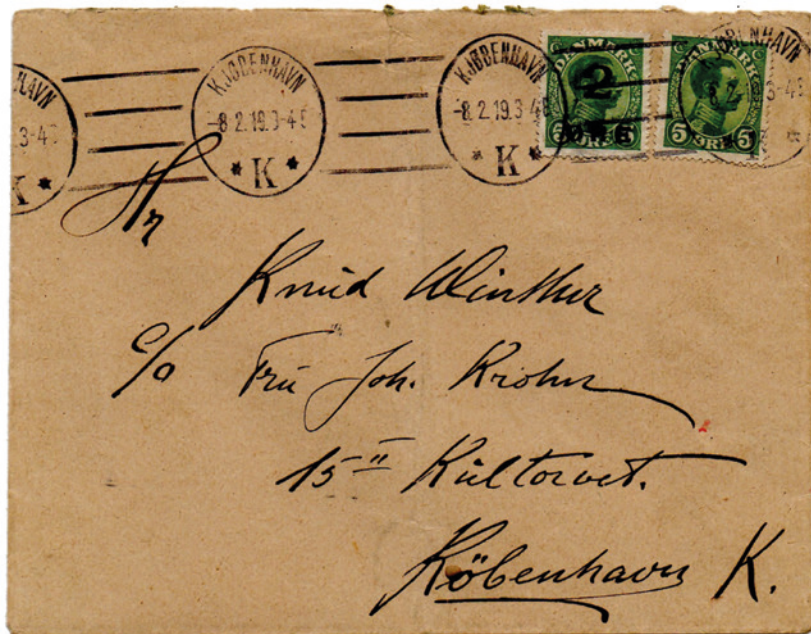 KJØBENHAVN
8.2.19.3-45
K
KJØBENHAVN
-8.2.19.3-45
K
DANMARK
2
ØRE
5 ØRE 5
DANMARK
5 ØRE 5
KJØBENHAVN
Hr
Knud Winther
c/o Fru Joh. Krohn
15 II Kultorvet.
København K.